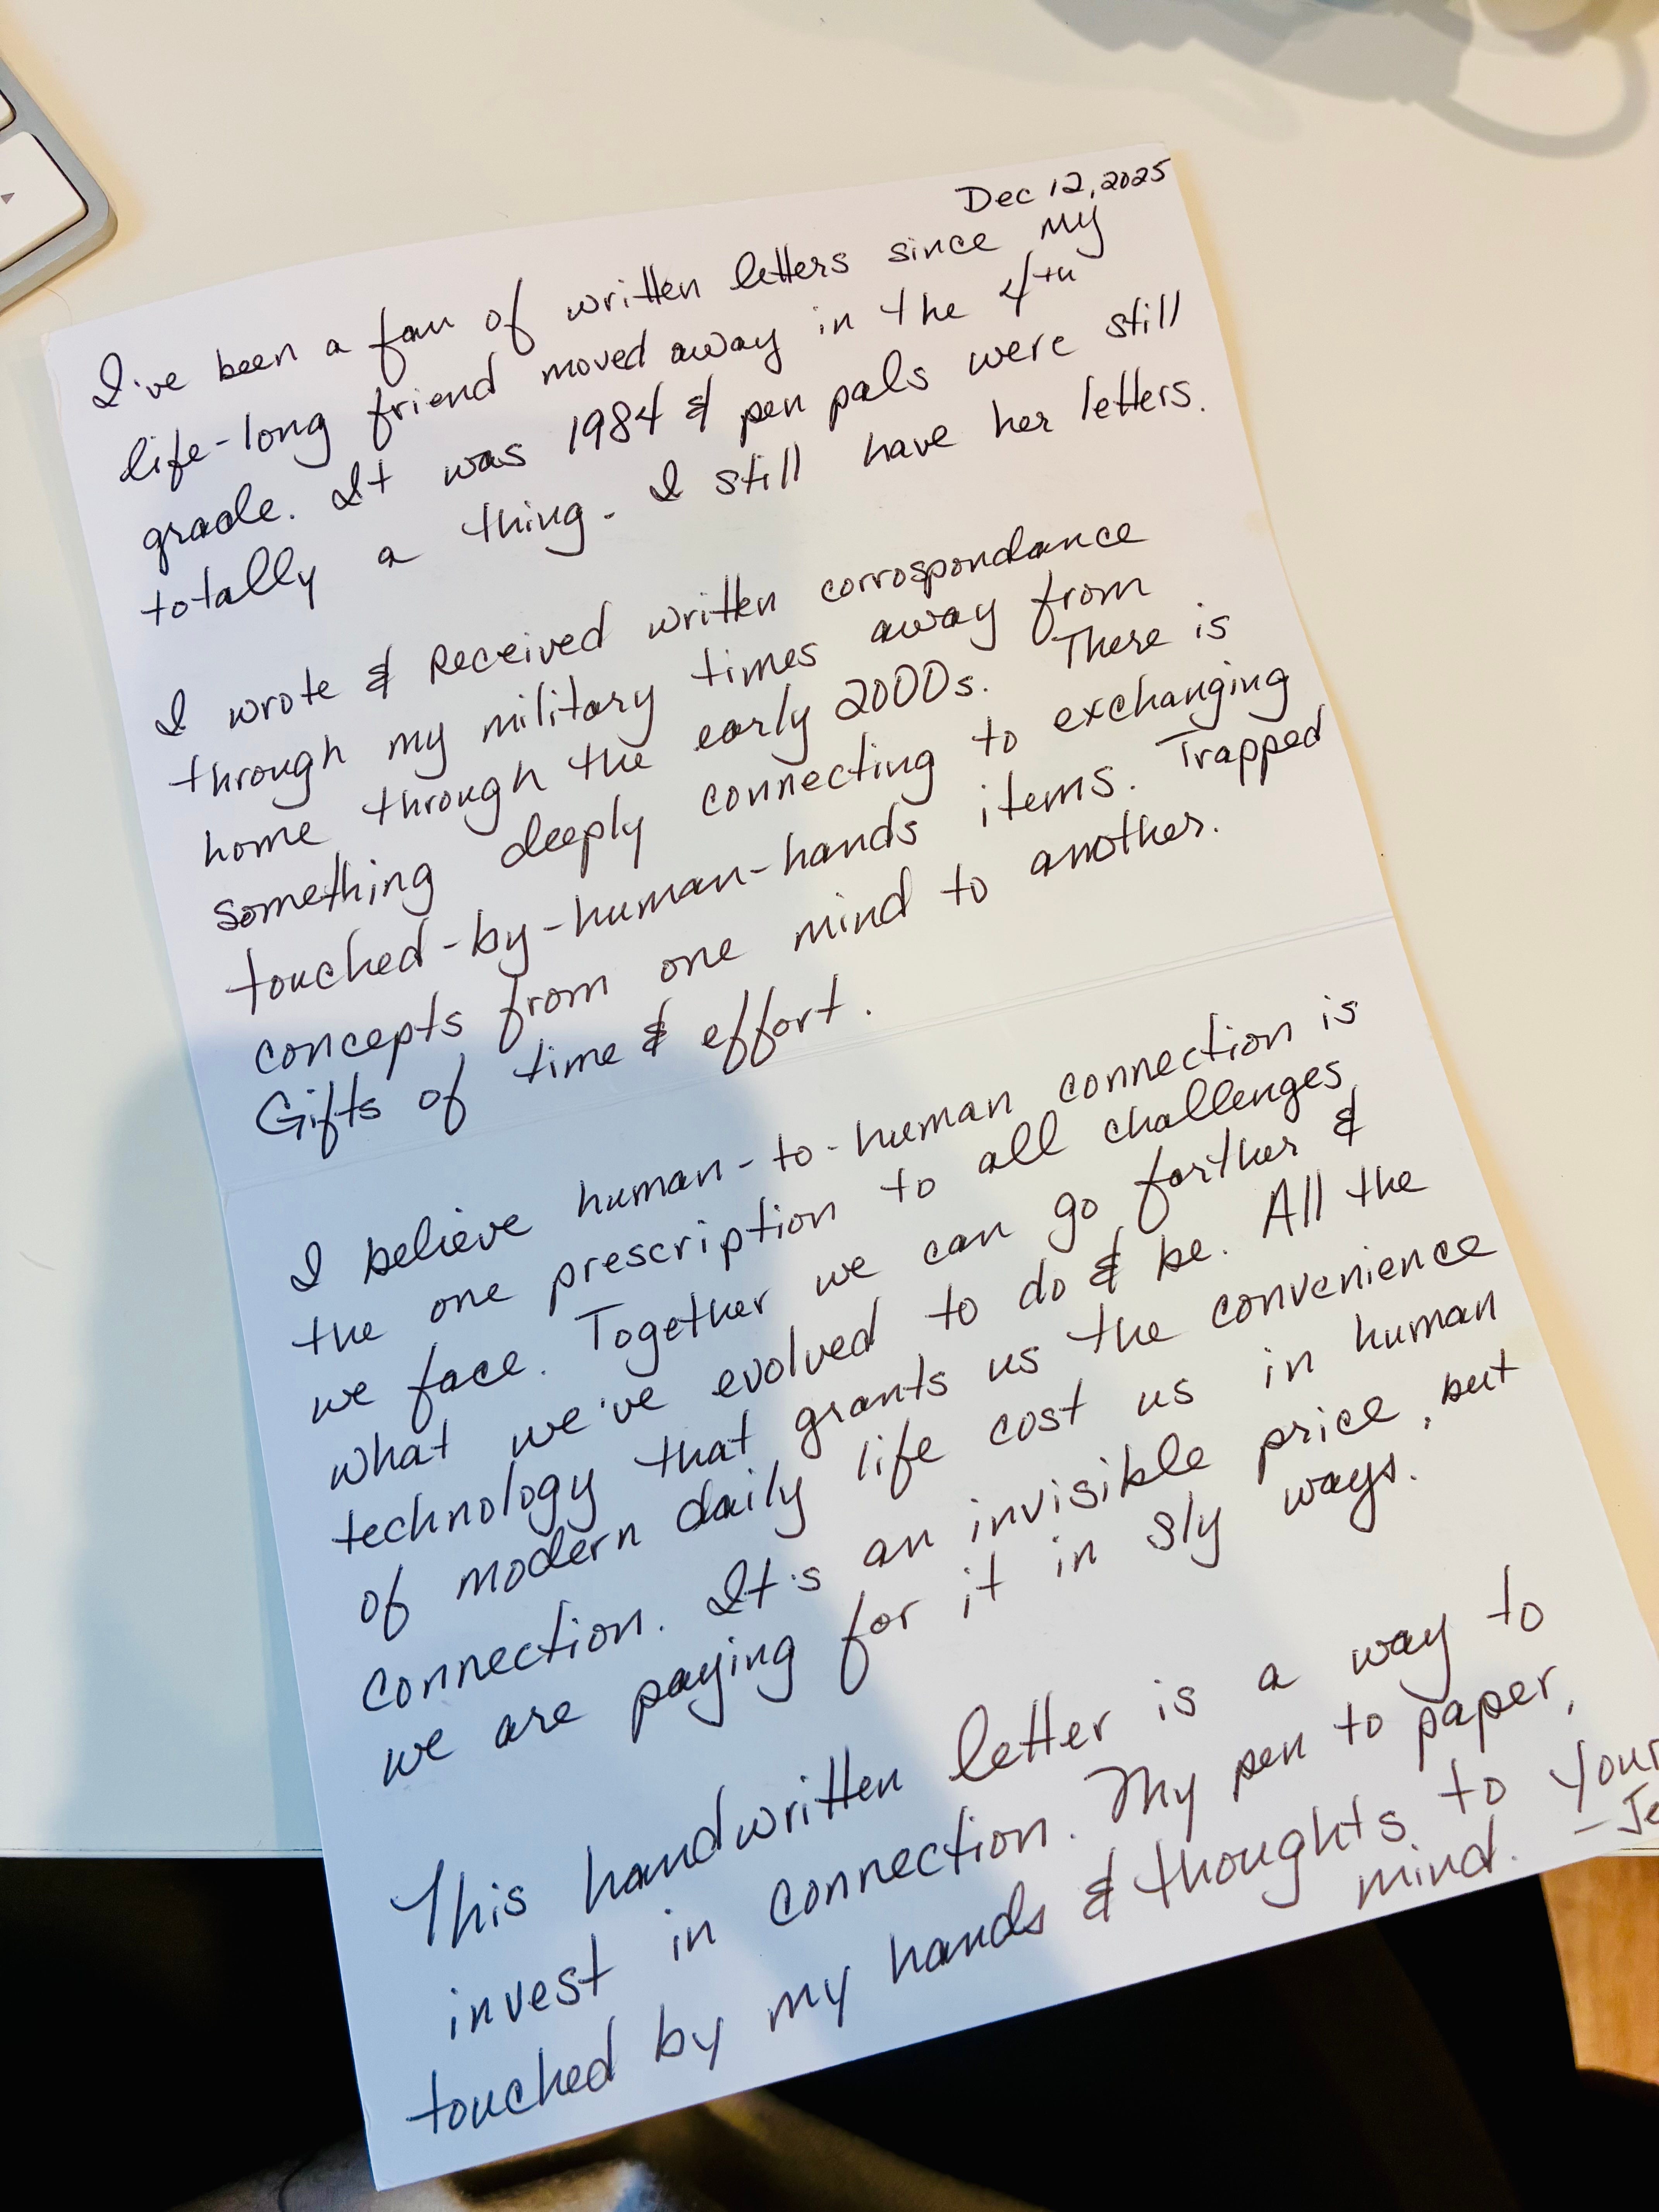 Dec 12, 2025
I've been a fan of written letters since my
life-long friend moved away in the 4th
grade. It was 1984 & pen pals were still
totally a thing. I still have her letters.
I wrote & Received written corrospondance
through my military times away from
home through the early 2000s. There is
something deeply connecting to exchanging
touched-by-human-hands items. Trapped
concepts from one mind to another.
Gifts of time & effort.
I believe human-to-human connection is
the one prescription to all challenges
we face. Together we can go farther &
what we've evolved to do & be. All the
technology that grants us the convenience
of modern daily life cost us in human
connection. It's an invisible price, but
we are paying for it in sly ways.
This handwritten letter is a way to
invest in connection. My pen to paper,
touched by my hands & thoughts to your
mind.